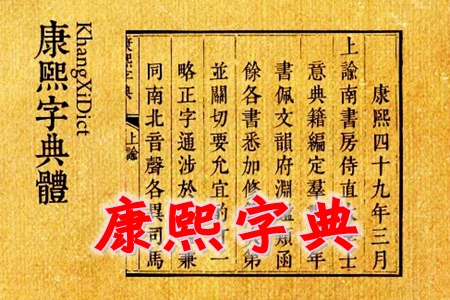 康熙字典體
KhangXiDict
康熙四十九年三月
上諭南書房侍直士
意典籍編定羣書年
書佩文韻府淵類函
餘各書悉加修第
並關切要允宜酌一
略正字通涉於兼
同南北音聲各異司馬
康熙字典
上諭
康熙字典